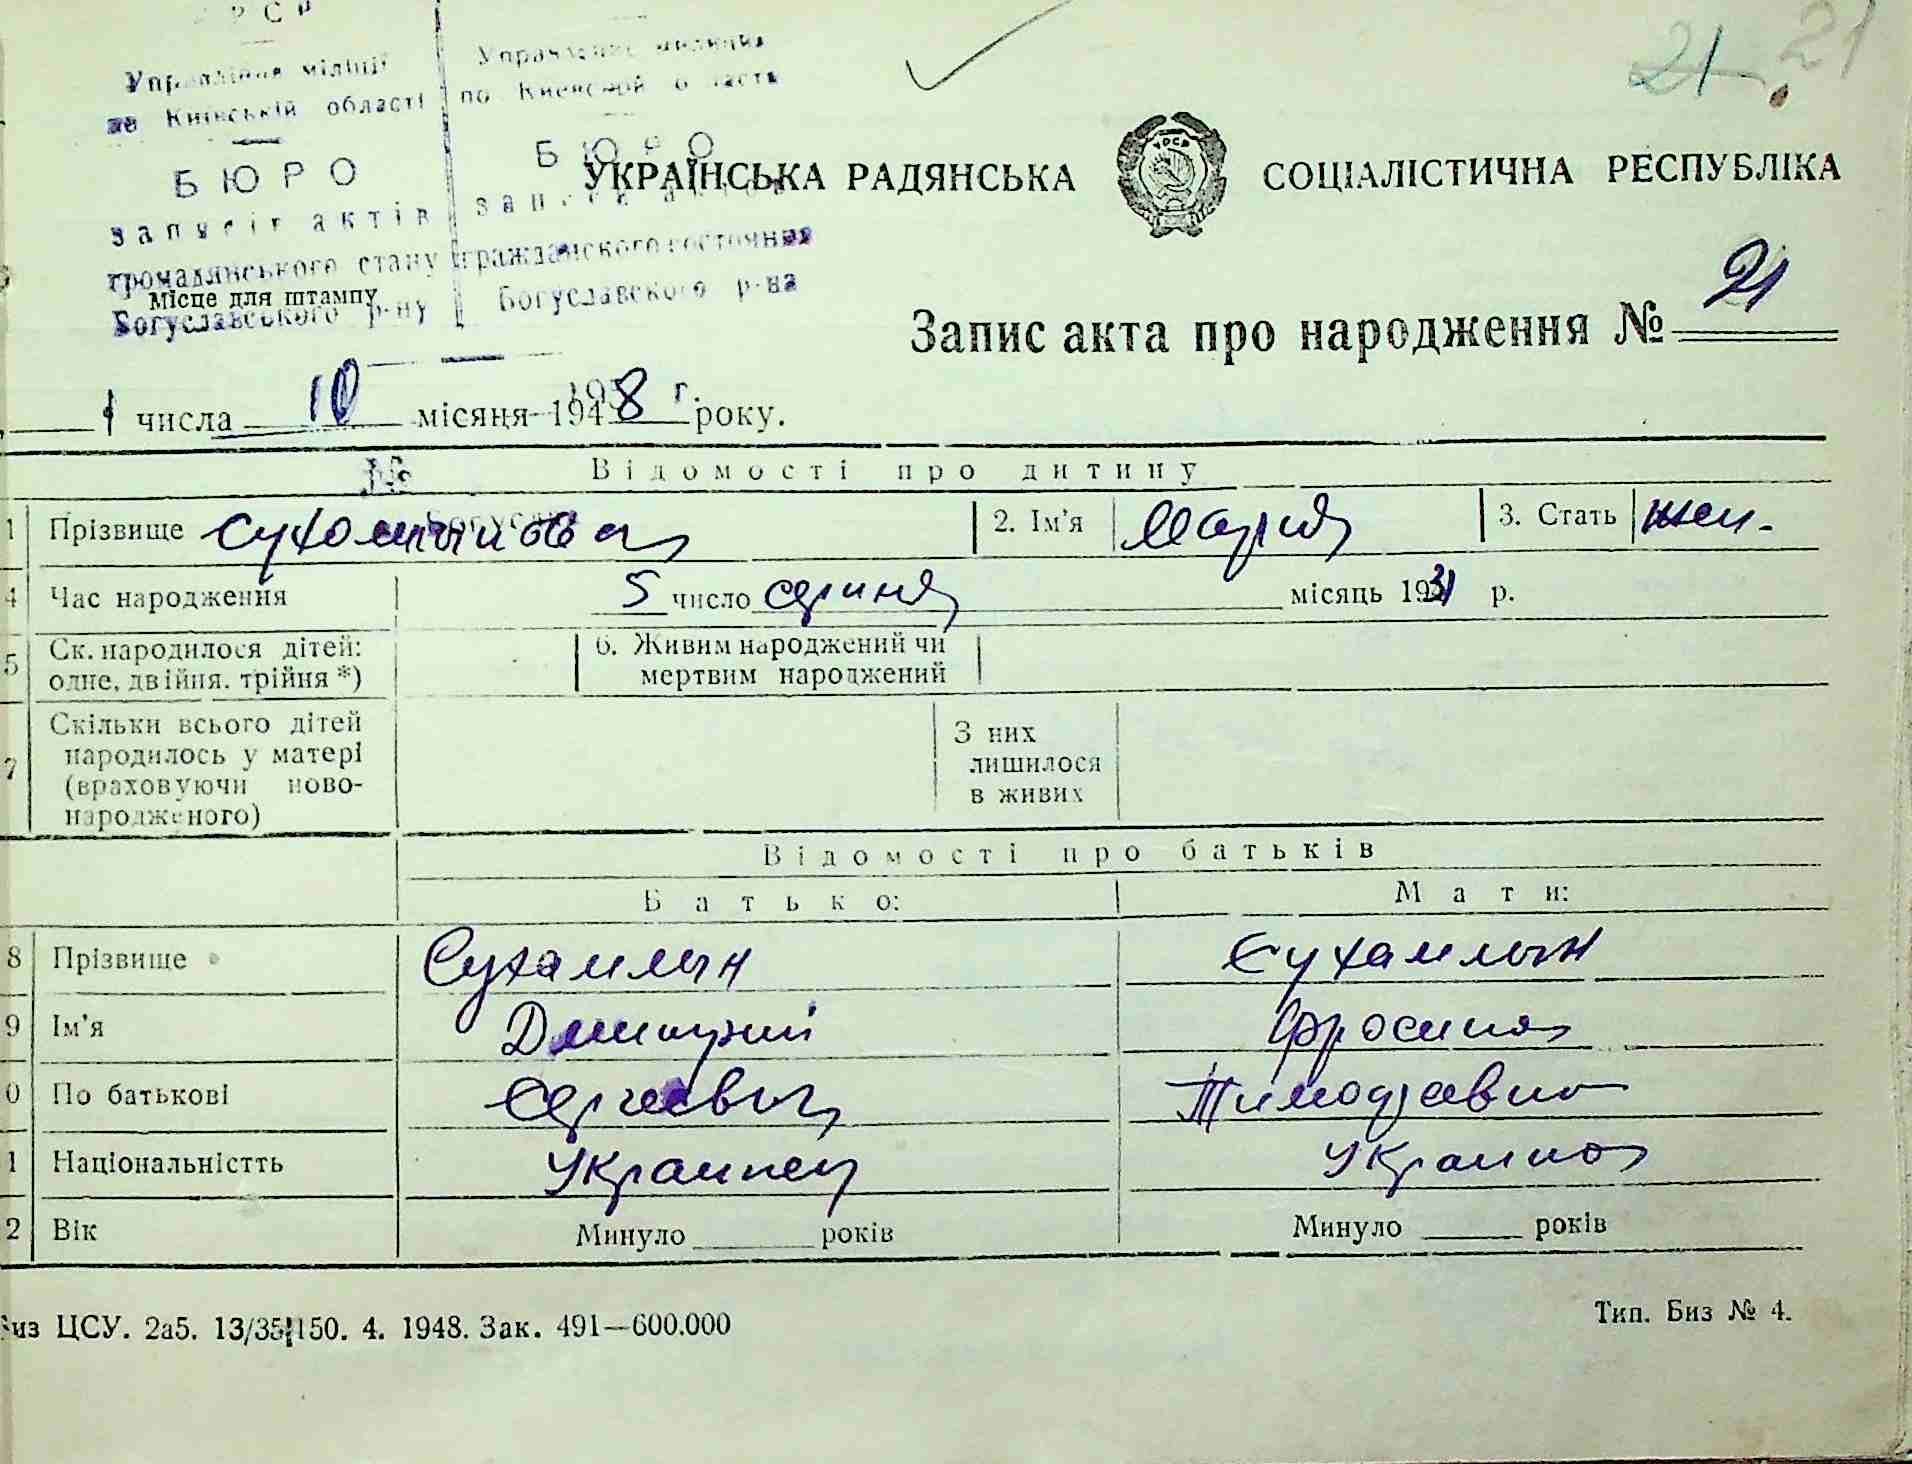 УРСР
Управління міліції
по Київській області
БЮРО
записів актів
громадянського стану
Богуславського р-ну
Управление милиции
по Киевской области
БЮРО
записей актов
гражданского состояния
Богуславского р-на
21 21
УКРАЇНСЬКА РАДЯНСЬКА СОЦІАЛІСТИЧНА РЕСПУБЛІКА
УРСР
місце для штампу
Запис акта про народження № 21
1 числа 10 місяця 1948 року.
г.
№
Богуслав
Відомості про дитину
1 Прізвище Сухомлинова 2. Ім'я Мария 3. Стать жен.
4 Час народження 5 число серпня місяць 1931 р.
5 Ск. народилося дітей: одне, двійня, трійня *) 6. Живим народжений чи мертвим народжений
7 Скільки всього дітей народилось у матері (враховуючи ново-народженого) З них лишилося в живих
Відомості про батьків
Батько: Мати:
8 Прізвище Сухамлын Сухамлын
9 Ім'я Дмитрий Фросина
0 По батькові Сергеевич Тимофеевна
1 Національністть Украинец Украинка
2 Вік Минуло років Минуло років
Биз ЦСУ. 2а5. 13/35 150. 4. 1948. Зак. 491—600.000
Тип. Биз № 4.